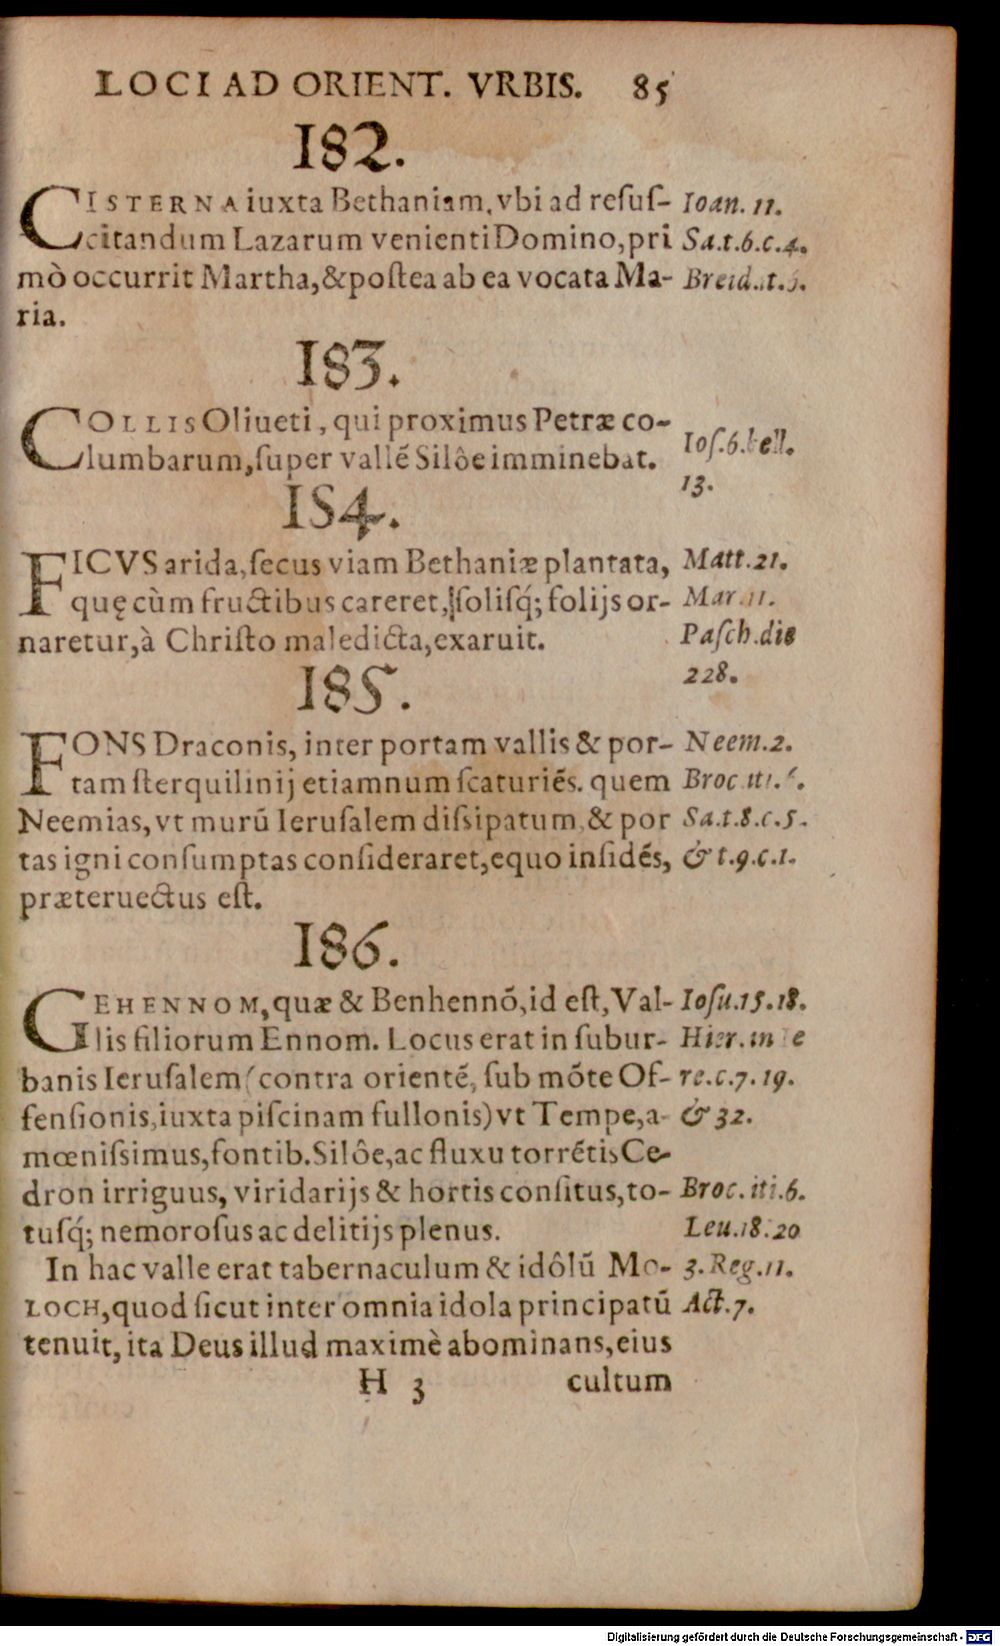 LOCI AD ORIENT. VRBIS. 85
182.
CISTERNA iuxta Bethaniam, vbi ad resus- Ioan. 11.
citandum Lazarum venienti Domino, pri Sa.t.6.c.4.
mò occurrit Martha, & postea ab ea vocata Ma- Breid.
ria.
183.
COLLIS Oliueti, qui proximus Petræ co-
lumbarum, super vallẽ Silôe imminebat. Ios.6.bell.
13.
184.
FICVS arida, secus viam Bethaniæ plantata, Matt.21.
quę cùm fructibus careret, solisq́; folijs or- Mar.11.
naretur, à Christo maledicta, exaruit. Pasch.die
228.
185.
FONS Draconis, inter portam vallis & por- Neem.2.
tam sterquilinij etiamnum scaturiẽs. quem Broc.iti.
Neemias, vt murũ Ierusalem dissipatum, & por Sa.t.8.c.5.
tas igni consumptas consideraret, equo insidẽs, & t.9.c.1.
præteruectus est.
186.
GEHENNOM, quæ & Benhennõ, id est, Val- Iosu.15.18.
lis filiorum Ennom. Locus erat in subur- Hier. in
banis Ierusalem (contra orientẽ, sub mõte Of- re.c.7.19.
fensionis, iuxta piscinam fullonis) vt Tempe, a- & 32.
mœnissimus, fontib. Silôe, ac fluxu torrẽtis Ce-
dron irriguus, viridarijs & hortis consitus, to- Broc. iti.6.
tusq́; nemorosus ac delitijs plenus. Leu.18.20
In hac valle erat tabernaculum & idôlũ Mo- 3.Reg.11.
LOCH, quod sicut inter omnia idola principatũ Act.7.
tenuit, ita Deus illud maximè abominans, eius
H 3 cultum
Digitalisierung gefördert durch die Deutsche Forschungsgemeinschaft - DFG